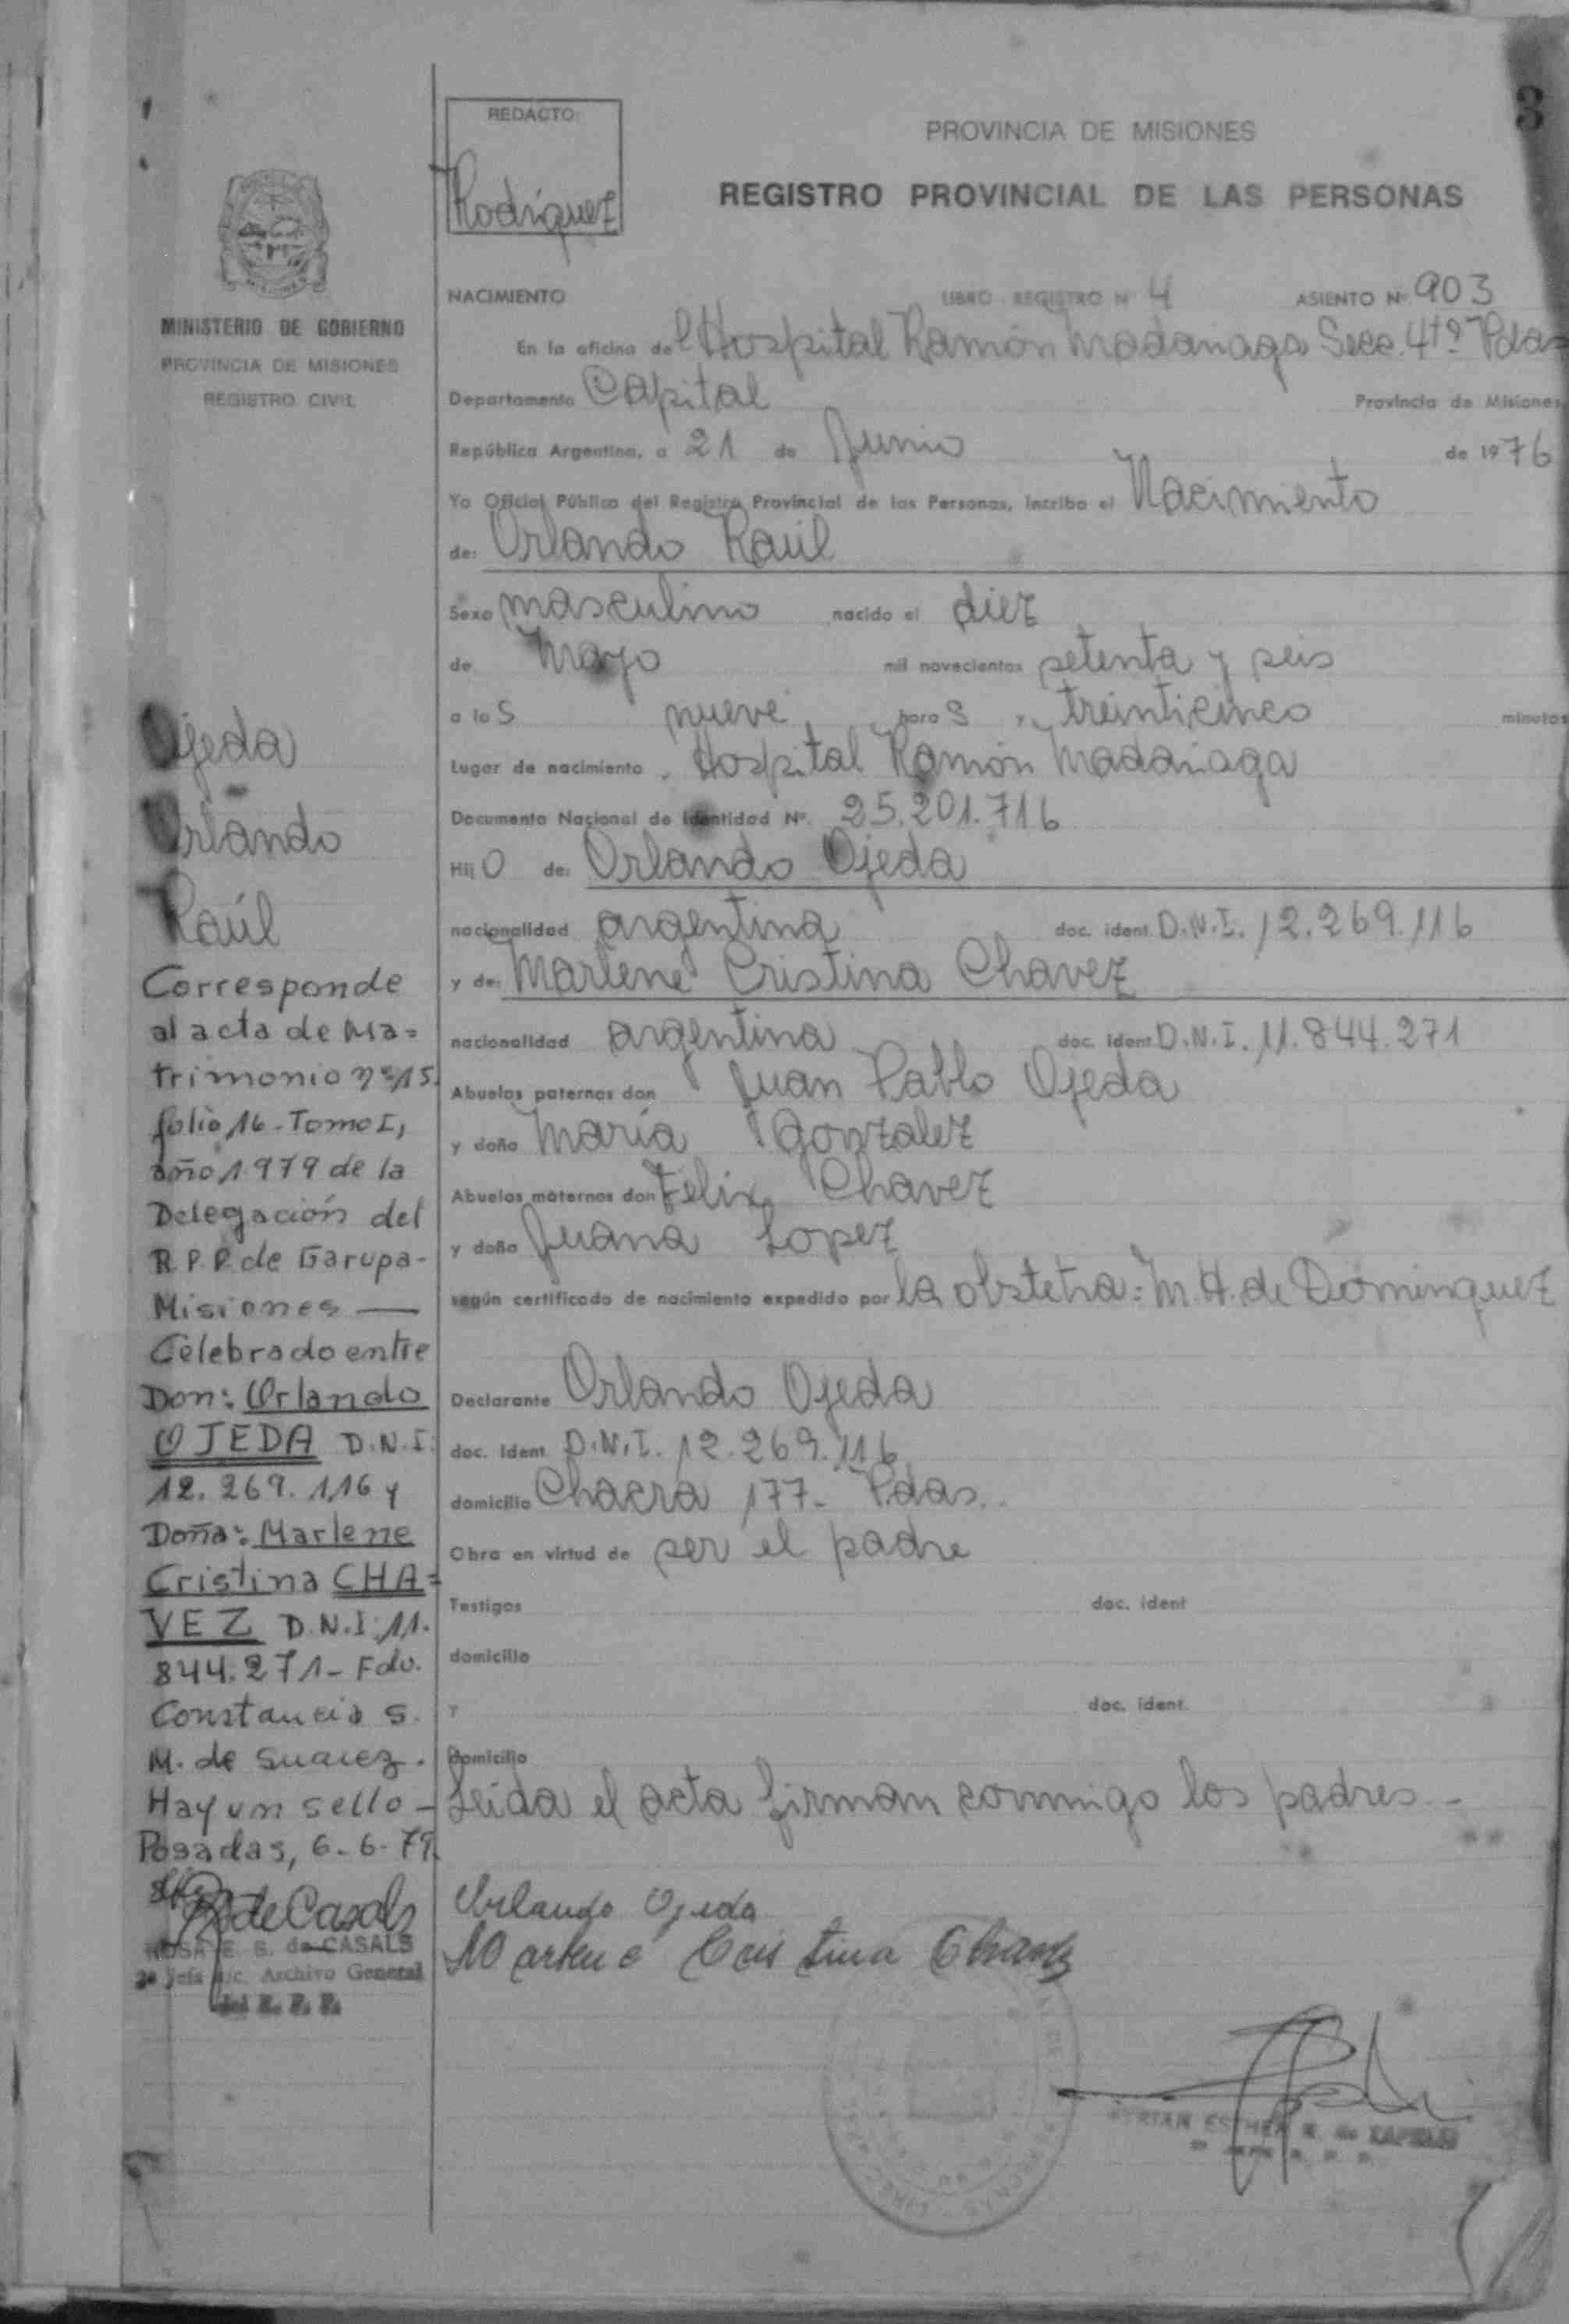 3
REDACTO:
Rodríguez
PROVINCIA DE MISIONES
REGISTRO PROVINCIAL DE LAS PERSONAS
MINISTERIO DE GOBIERNO
PROVINCIA DE MISIONES
REGISTRO CIVIL
NACIMIENTO LIBRO REGISTRO Nº 4 ASIENTO Nº 903
En la oficina del Hospital Ramón Madariaga Secc. 4tª Pdas
Departamento Capital Provincia de Misiones,
República Argentina, a 21 de Junio de 1976
Yo Oficial Público del Registro Provincial de las Personas, incribo el Nacimiento
de: Orlando Raúl
Sexo masculino nacido el diez
de Mayo mil novecientos setenta y seis
a las nueve horas y treinticinco minutos
Lugar de nacimiento Hospital Ramón Madariaga
Documento Nacional de Identidad Nº 25.201.716
Hijo de: Orlando Ojeda
nacionalidad argentina doc. ident. D.N.I. 12.269.116
y de: Marlene Cristina Chavez
nacionalidad argentina doc. ident. D.N.I. 11.844.271
Abuelos paternos don Juan Pablo Ojeda
y doña María Gonzalez
Abuelos maternos don Felix Chavez
y doña Juana Lopez
según certificado de nacimiento expedido por la obstetra: M.H. de Dominguez
Declarante Orlando Ojeda
doc. ident D.N.I. 12.269.116
domicilio Chacra 177- Pdas.
Obra en virtud de ser el padre
Testigos doc. ident
domicilio
Y doc. ident.
Domicilio
Leída el acta firman conmigo los padres.-
Orlando Ojeda
Marlene Cristina Chavez
Ojeda
Orlando
Raúl
Corresponde
al acta de Ma=
trimonio nº 15.
folio 16-Tomo I,
año 1979 de la
Delegación del
R.P.P. de Garupa-
Misiones —
Celebrado entre
Don: Orlando
OJEDA D.N.I:
12.269.116 y
Doña: Marlene
Cristina CHA=
VEZ D.N.I: 11.
844.271- Fdo.
Constancia S.
M. de Suarez.
Hay un sello-
Posadas, 6-6-79.
de Casals
ROSA E. S. de CASALS
2º Jefe a/c. Archivo General
del R. P. P.
ESTHER